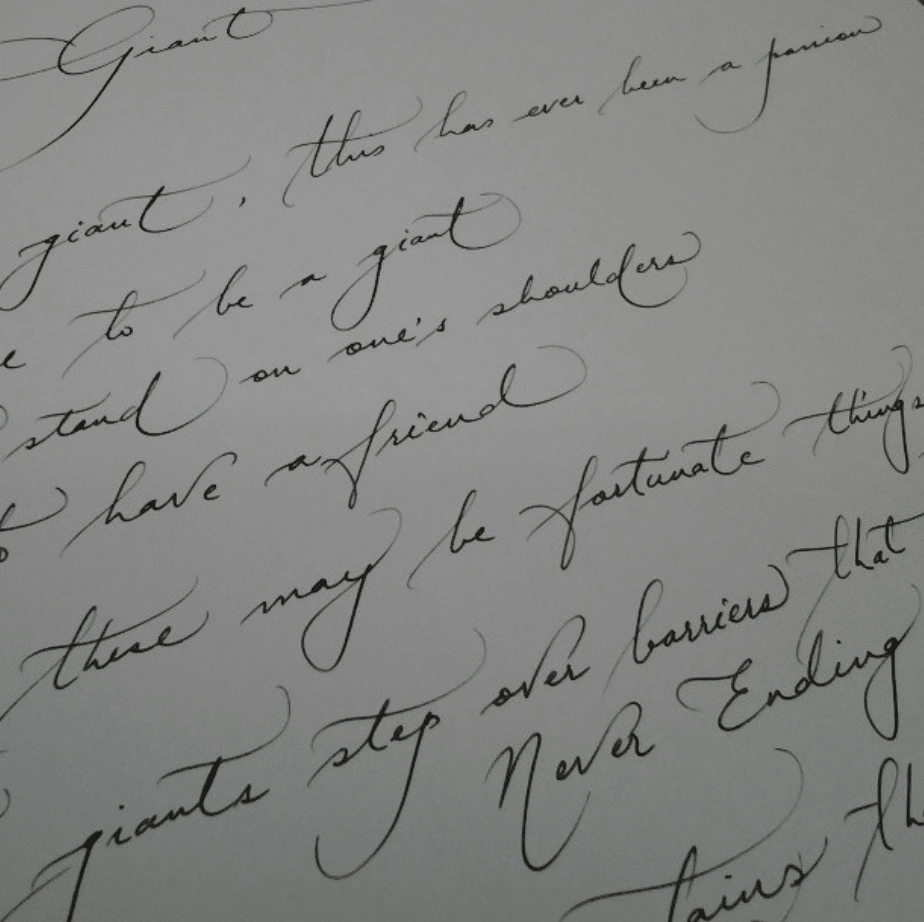 Giant
giant, this has ever been a passion
to be a giant
stand on one's shoulders
have a friend
these may be fortunate things
giants step over barriers that
Never Ending